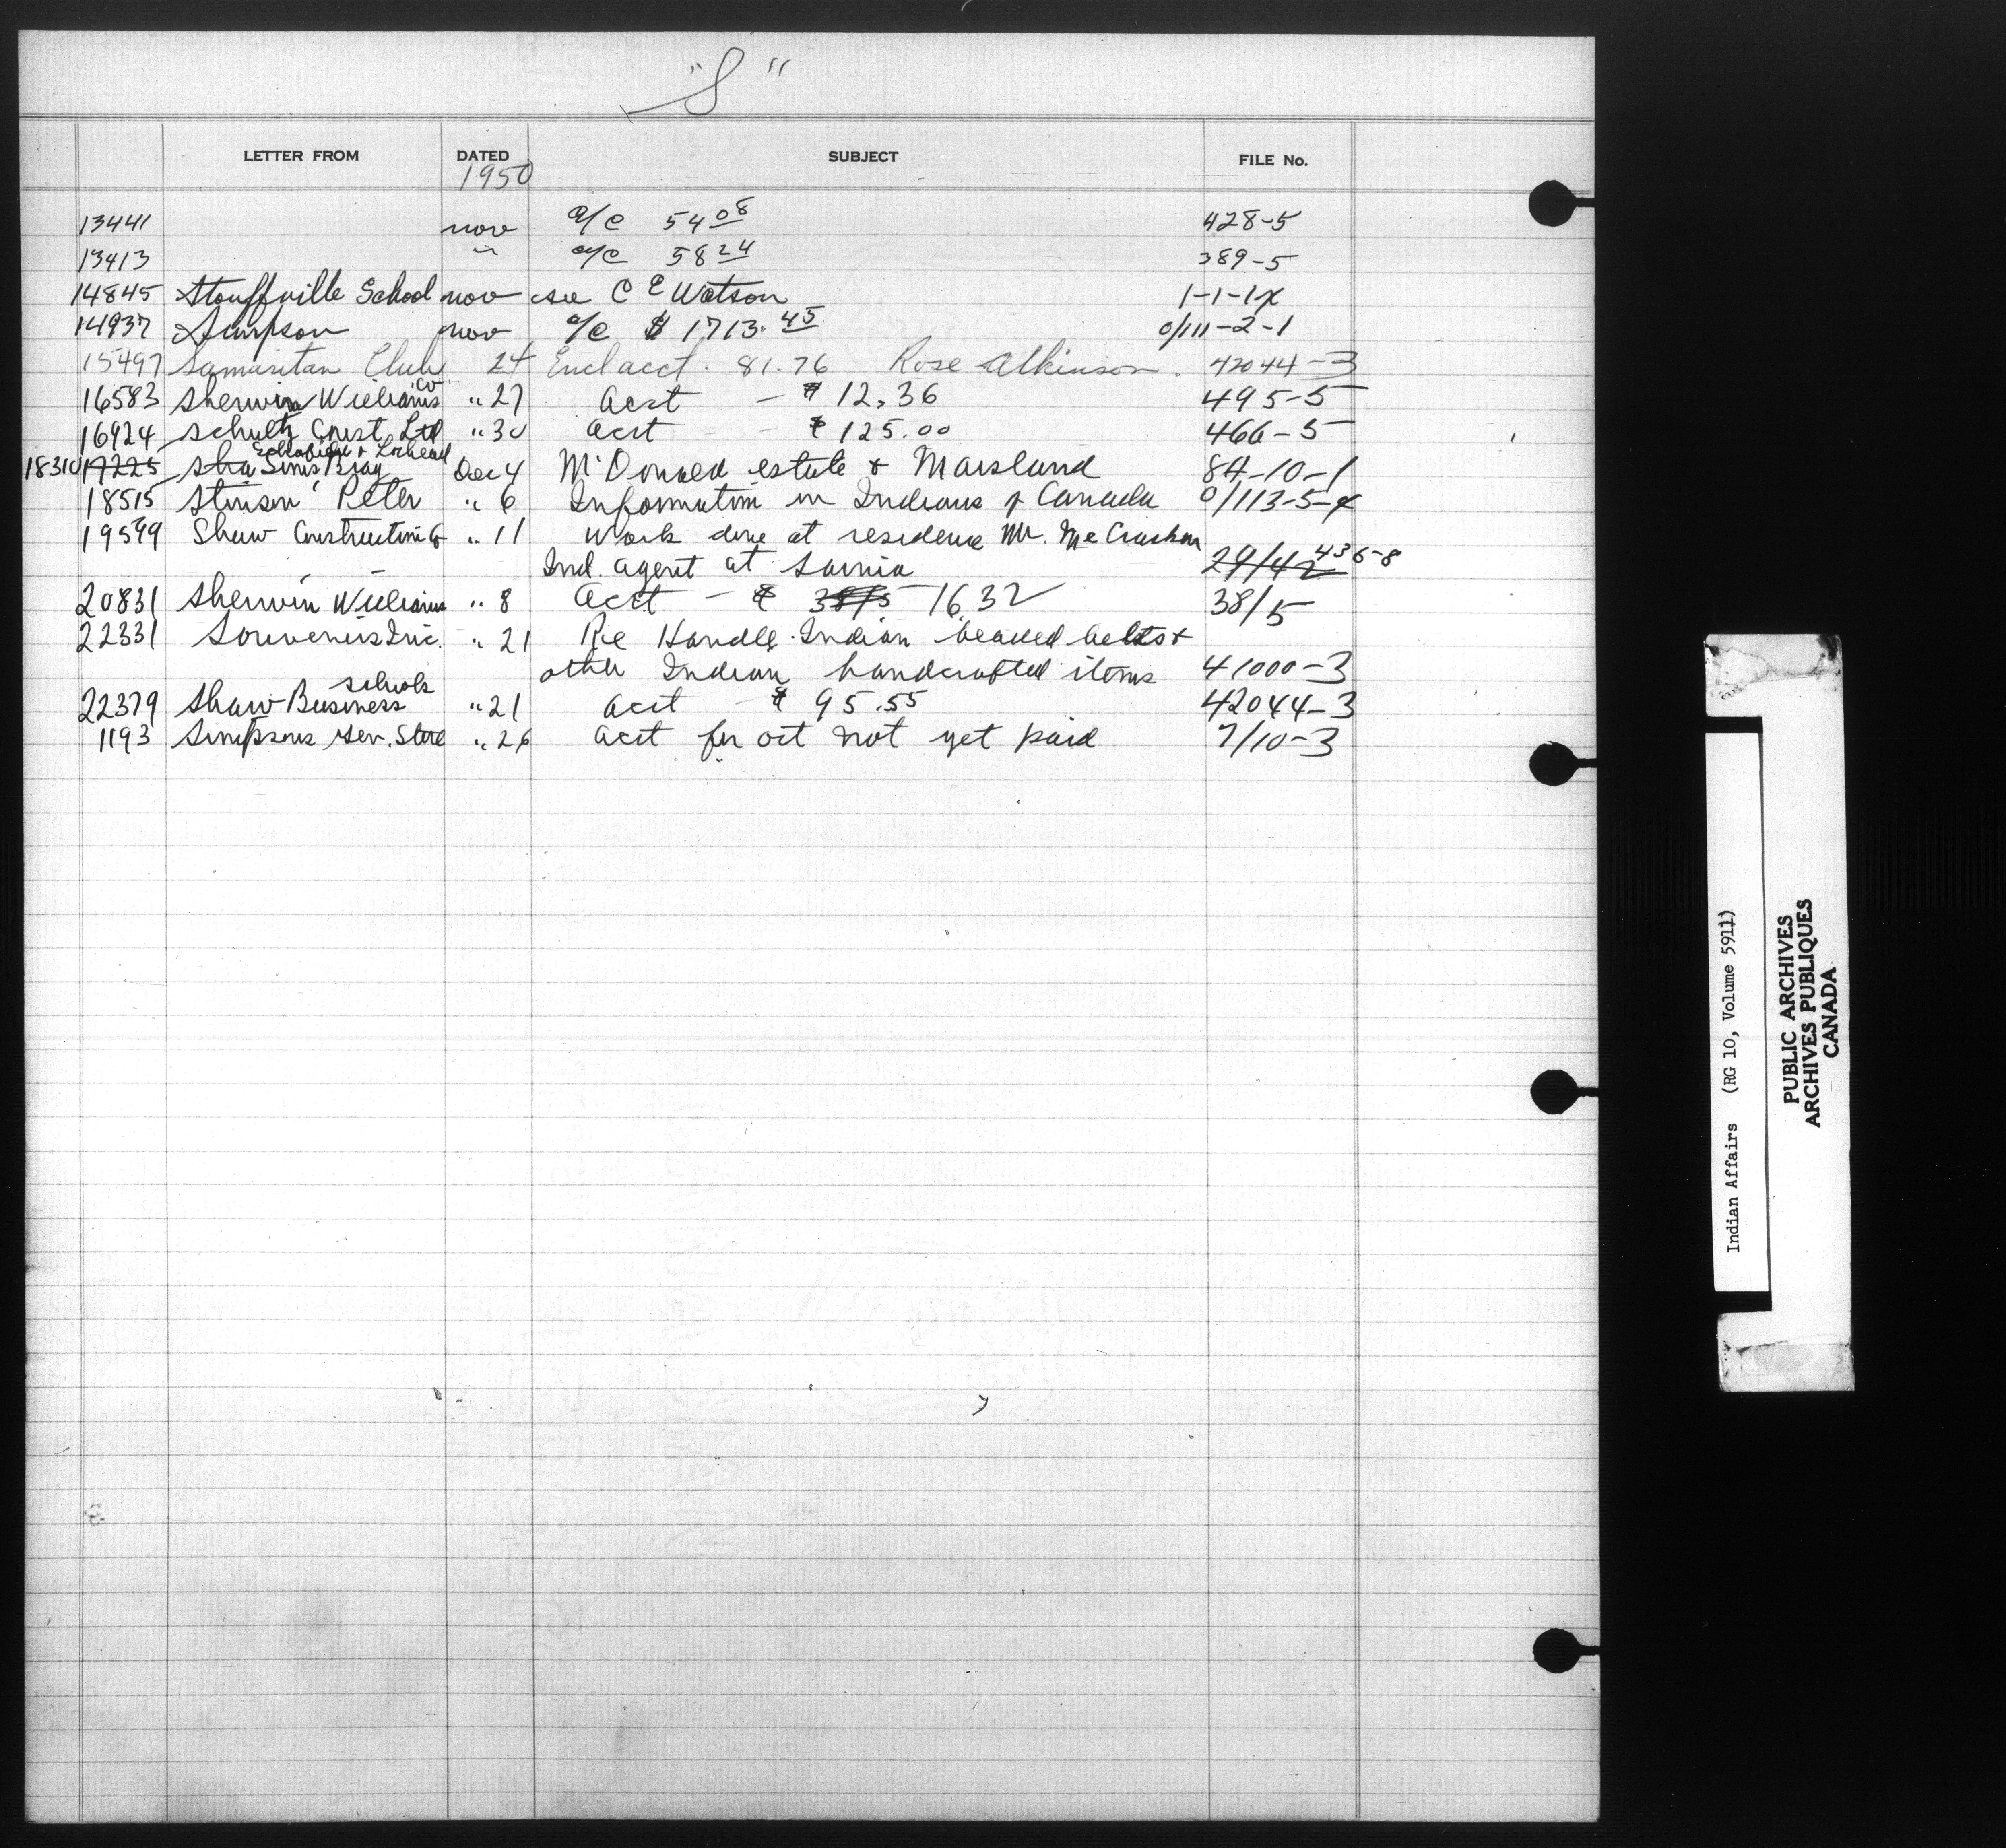 "S"
LETTER FROM DATED SUBJECT FILE No.
1950
13441 nov a/c 54 08 428-5
13413 " a/c 58 24 389-5
14845 Stouffville School nov see C E Watson 1-1-1x
14937 Simpson nov a/c $ 1713.45 0/111-2-1
15497 Samaritan Club 24 Encl acct. 81.76 Rose Atkinson. 42044-3
16583 Sherwin Williams Co "27 Acct - $ 12.36 495-5
16924 Schultz Const Ltd "30 acct - $ 125.00 466-5
18310 17225 Sha Sims Bray & Lochead Dec 4 McDonald estate & Marsland 84-10-1
18515 Stinson Peter " 6 Information on Indians of Canada 0/113-5-4
19599 Shaw Construction Co " 11 Work done at residence Mr. McCracken
Ind. agent at Sarnia 29/42 436-8
20831 Sherwin Williams " 8 acct - $ 38/5 16.32 38/5
22331 Souvenirs Inc. " 21 Re Handle Indian beaded belts &
other Indian handcrafted items 41000-3
22379 Shaw Business Schools "21 acct $ 95.55 42044-3
1193 Simpsons Gen. Store " 26 acct for oct not yet paid 7/10-3
Indian Affairs (RG 10, Volume 5911)
PUBLIC ARCHIVES
ARCHIVES PUBLIQUES
CANADA